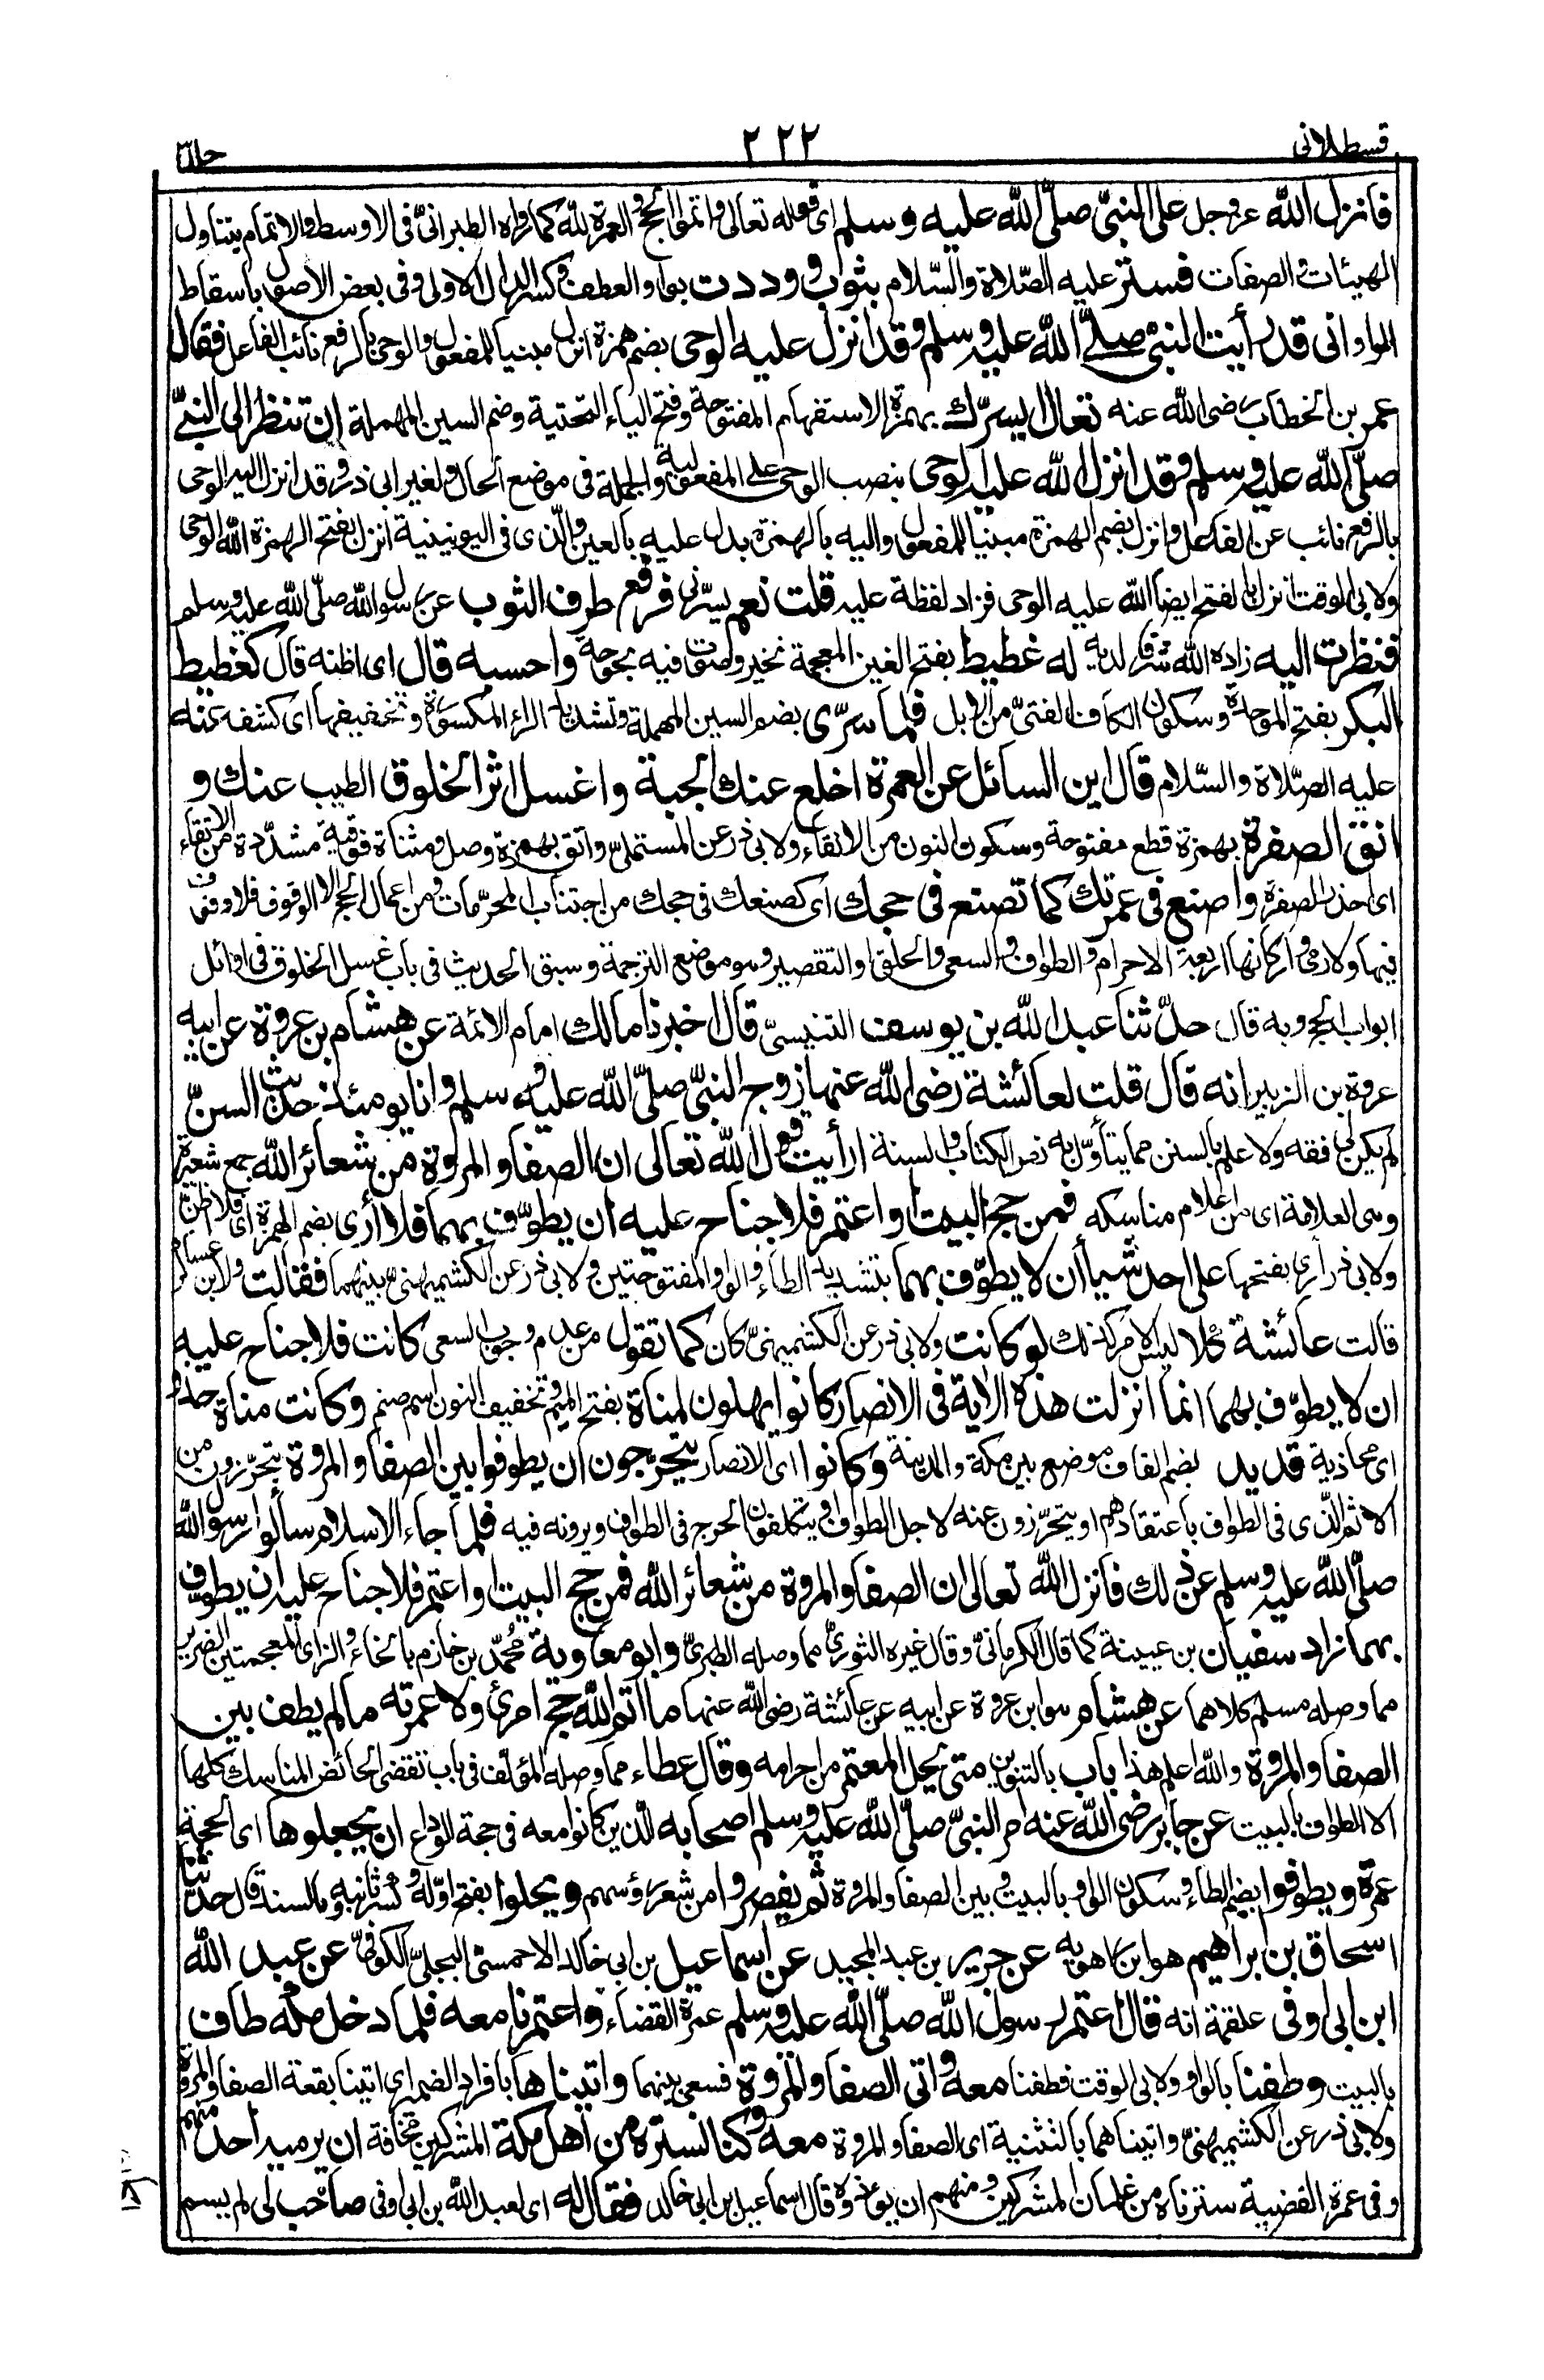 قسطلانى
٢٢٢
فانزل الله عز وجل على النبىّ صلّى الله عليه وسلم اى قوله تعالى واتموا الحج والعمرة لله كما رواه الطبرانىّ فى الاوسط والاتمام يتناول
الهيئات والصفات فستر عليه الصّلاة والسّلام بثوب ووددت بواو العطف وكسر الدال الاولى وفى بعض الاصول باسقاط
الواو انى قد رأيت النبىّ صلّى الله عليه وسلم وقد انزل عليه الوحى بضم همزة انزل مبنيا للمفعول والوحى بالرفع نائب الفاعل فقال
عمر بن الخطاب رضى الله عنه تعال ايسرّك بهمزة الاستفهام المفتوحة وفتح الياء التحتية وضم السين المهملة ان تنظر الى النبىّ
صلّى الله عليه وسلم وقد انزل الله عليه الوحى بنصب الوحى على المفعولية والجملة فى موضع الحال ولغير ابى ذر وقد انزل اليه الوحى
بالرفع نائب عن الفاعل وانزل بضم الهمزة مبنيا للمفعول واليه بالهمزة بدل عليه بالعين والّذى فى اليونينية انزل بفتح الهمزة الله الوحى
ولابى الوقت انزل بالفتح ايضا الله عليه الوحى فزاد لفظة عليه قلت نعم يسرّنى فرفع طرف الثوب عن رسول الله صلّى الله عليه وسلم
فنظرت اليه زاده الله شرفا لديه له غطيط بفتح الغين المعجمة نخير وصوت فيه بحوحة واحسبه قال اى اظنه قال كغطيط
البكر بفتح الموحدة وسكون الكاف الفتىّ من الابل فلما سرّى بضم السين المهملة وتشديد الراء المكسورة وتخفيفها اى كشف عنه
عليه الصّلاة والسّلام قال اين السائل عن العمرة اخلع عنك الجبة واغسل اثر الخلوق الطيب عنك و
انق الصفرة بهمزة قطع مفتوحة وسكون النون من الانقاء ولابى ذر عن المستملىّ واتق بهمزة وصل ومثناة فوقية مشدّدة من الاتقاء
اى احذر الصفرة واصنع فى عمرتك كما تصنع فى حجك اى كصنعك فى حجك من اجتناب المحرّمات ومن اعمال الحج الا الوقوف فلا وقوف
فيها ولا رمى واركانها اربعة الاحرام والطواف والسعى والحلق او التقصير وهو موضع الترجمة وسبق الحديث فى باب غسل الخلوق فى اوائل
ابواب الحج وبه قال حدّثنا عبد الله بن يوسف التنيسىّ قال اخبرنا مالك امام الائمة عن هشام بن عروة عن ابيه
عروة بن الزبير انه قال قلت لعائشة رضى الله عنها زوج النبىّ صلّى الله عليه وسلم وانا يومئذ حديث السنّ
لم يكن لى فقه ولا علم بالسنن مما يتأوّل به نص الكتاب والسنة ارأيت قول الله تعالى ان الصفا والمروة من شعائر الله جمع شعيرة
وهى العلامة اى من اعلام مناسكه فمن حج البيت او اعتمر فلا جناح عليه ان يطوّف بهما فلا أرى بضم الهمزة اى فلا اظن
ولابى ذر أرى بفتحها على احد شيأ أن لا يطوّف بهما بتشديد الطاء والواو المفتوحتين ولابى ذر عن الكشميهنىّ بينهما فقالت ولابن عساكر
قالت عائشة كلا ليس الامر كذلك لو كانت ولابى ذر عن الكشميهنىّ كان كما تقول من عدم وجوب السعى كانت فلا جناح عليه
ان لا يطوّف بهما انما انزلت هذه الاية فى الانصار كانوا يهلون لمناة بفتح الميم وتخفيف النون اسم صنم وكانت مناة حذو
اى محاذية قديد بضم القاف موضع بين مكة والمدينة وكانوا اى الانصار يتحرّجون ان يطوفوا بين الصفا والمروة يتحرّزون من
الاثم الّذى فى الطواف باعتقادهم او يتحرّزون عنه لاجل الطواف ويتكلفون الحرج فى الطواف ويرونه فيه فلما جاء الاسلام سألوا رسول الله
صلّى الله عليه وسلم عن ذلك فانزل الله تعالى ان الصفا والمروة من شعائر الله فمن حج البيت او اعتمر فلا جناح عليه ان يطوّف
بهما زاد سفيان بن عيينة كما قال الكرمانىّ وقال غيره الثورىّ مما وصله الطبرىّ وابو معاوية محمّد بن خازم بالخاء والزاى المعجمتين الضرير
مما وصله مسلم كلاهما عن هشام هو ابن عروة عن ابيه عن عائشة رضى الله عنها ما اتم الله حج امرئ ولا عمرته ما لم يطف بين
الصفا والمروة والله اعلم هذا باب بالتنوين متى يحل المعتمر من احرامه وقال عطاء مما وصله المؤلّف فى باب تقضى الحائض المناسك كلها
الا الطواف بالبيت عن جابر رضى الله عنه امر النبىّ صلّى الله عليه وسلم اصحابه الّذين كانوا معه فى حجة الوداع ان يجعلوها اى الحجة
عمرة ويطوفوا بضم الطاء وسكون الواو بالبيت وبين الصفا والمروة ثم يقصروا من شعر رؤسهم ويحلوا بفتح اوّله وكسر ثانيه وبالسند قال حدّثنا
اسحاق بن ابراهيم هو ابن راهويه عن جرير بن عبد المجيد عن اسماعيل بن ابى خالد الاحمسىّ البجلىّ الكوفىّ عن عبد الله
ابن ابى اوفى علقمة انه قال اعتمر رسول الله صلّى الله عليه وسلم عمرة القضاء واعتمرنا معه فلما دخل مكّة طاف
بالبيت وطفنا بالواو ولابى الوقت فطفنا معه واتى الصفا والمروة فسعى بينهما واتيناها بافراد الضمير اى اتينا بقعة الصفا والمروة
ولابى ذر عن الكشميهنىّ واتيناهما بالتثنية اى الصفا والمروة معه وكنا نستره من اهل مكة المشركين مخافة ان يرميه احد منهم
وفى عمرة القضية سترناه من غلمان المشركين ومنهم ان يؤذوه قال اسماعيل بن ابى خالد فقال له اى لعبد الله بن ابى اوفى صاحب لى لم يسم